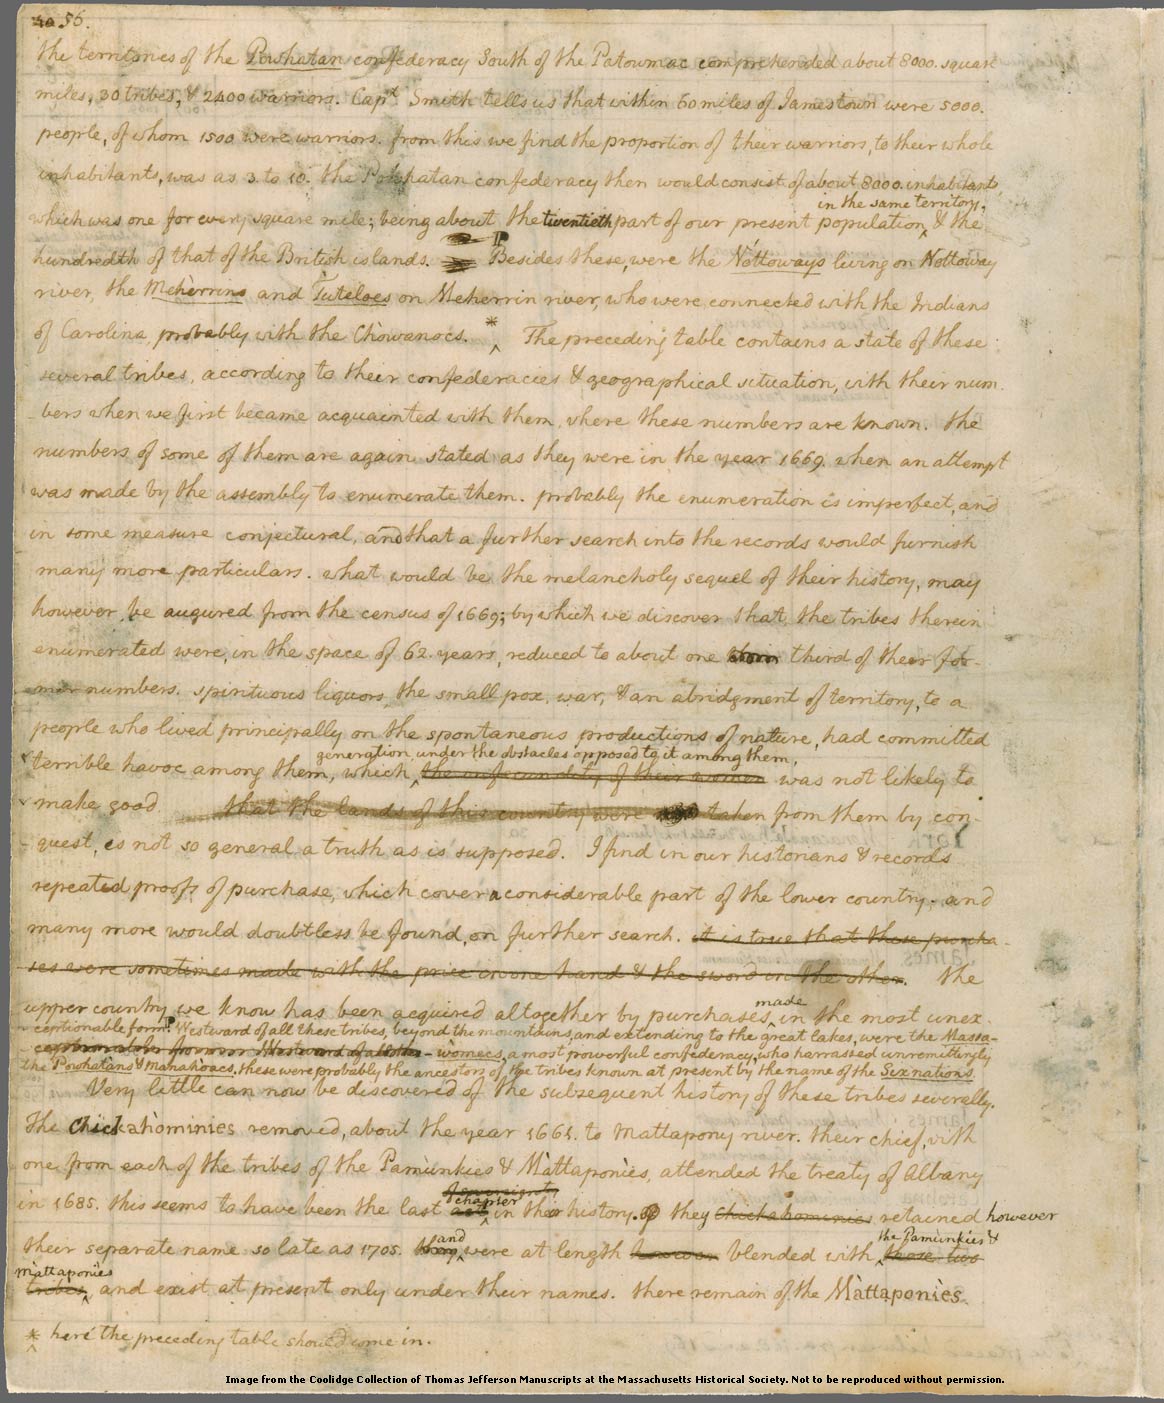 40 56.
the territories of the Powhatan confederacy South of the Patowmac comprehended about 8000. square
miles, 30 tribes, & 2400 warriors. Capt. Smith tells us that within 60 miles of Jamestown were 5000.
people, of whom 1500 were warriors. from this we find the proportion of their warriors, to their whole
inhabitants, was as 3. to 10. the Powhatan confederacy then would consist of about 8000. inhabitants,
in the same territory,
which was one for every square mile; being about the twentieth part of our present population ‸ & the
hundredth of that of the British islands. Besides these, were the Nóttoways living on Nottoway
river, the Mehèrrins and Tùteloes on Meherrin river, who were connected with the Indians
of Carolina, probably with the Chòwanocs. *‸ The preceding table contains a state of these
several tribes, according to their confederacies & geographical situation, with their num-
bers when we first became acquainted with them, where these numbers are known. the
numbers of some of them are again stated as they were in the year 1669. when an attempt
was made by the assembly to enumerate them. probably the enumeration is imperfect, and
in some measure conjectural, and that a further search into the records would furnish
many more particulars. what would be the melancholy sequel of their history, may
however be augured from the census of 1669; by which we discover that the tribes therein
enumerated were, in the space of 62. years, reduced to about one third of their for-
mer numbers. spirituous liquors, the small pox, war, & an abridgment of territory, to a
people who lived principally on the spontaneous productions of nature, had committed
generation, under the obstacles opposed to it among them,
terrible havoc among them, which ‸ the infecundity of their women was not likely to
make good. that the lands of this country were taken from them by con-
quest, is not so general a truth as is supposed. I find in our historians & records
repeated proofs of purchase, which cover a considerable part of the lower country; and
many more would doubtless be found, on further search. it is true that these purcha-
ses were sometimes made with the price in one hand & the sword in the other. the
made
upper country we know has been acquired altogether by purchases ‸ in the most unex-
ceptionable form. Westward of all these tribes, beyond the mountains, and extending to the great lakes, were the Massa-
ceptionable form Westward of all the - wòmecs, a most powerful confederacy, who harrassed unremittingly
the Powhatans & Manahòacs. these were probably the ancestors of the tribes known at present by the name of the Six nations.
Very little can now be discovered of the subsequent history of these tribes severally.
The Chickahòminies removed, about the year 1661. to Mattapony river. their chief, with
one from each of the tribes of the Pamùnkies & Màttaponìes, attended the treaty of Albany
of sovereignty
chapter
in 1685. this seems to have been the last act ‸ in their history. they chickahominies retained however
and the Pamùnkies &
their separate name so late as 1705. they ‸ were at length blended with ‸ these two
màttaponies
tribes, ‸ and exist at present only under their names. there remain of the Màttaponìes
*‸ here the preceding table should come in.
Image from the Coolidge Collection of Thomas Jefferson Manuscripts at the Massachusetts Historical Society. Not to be reproduced without permission.